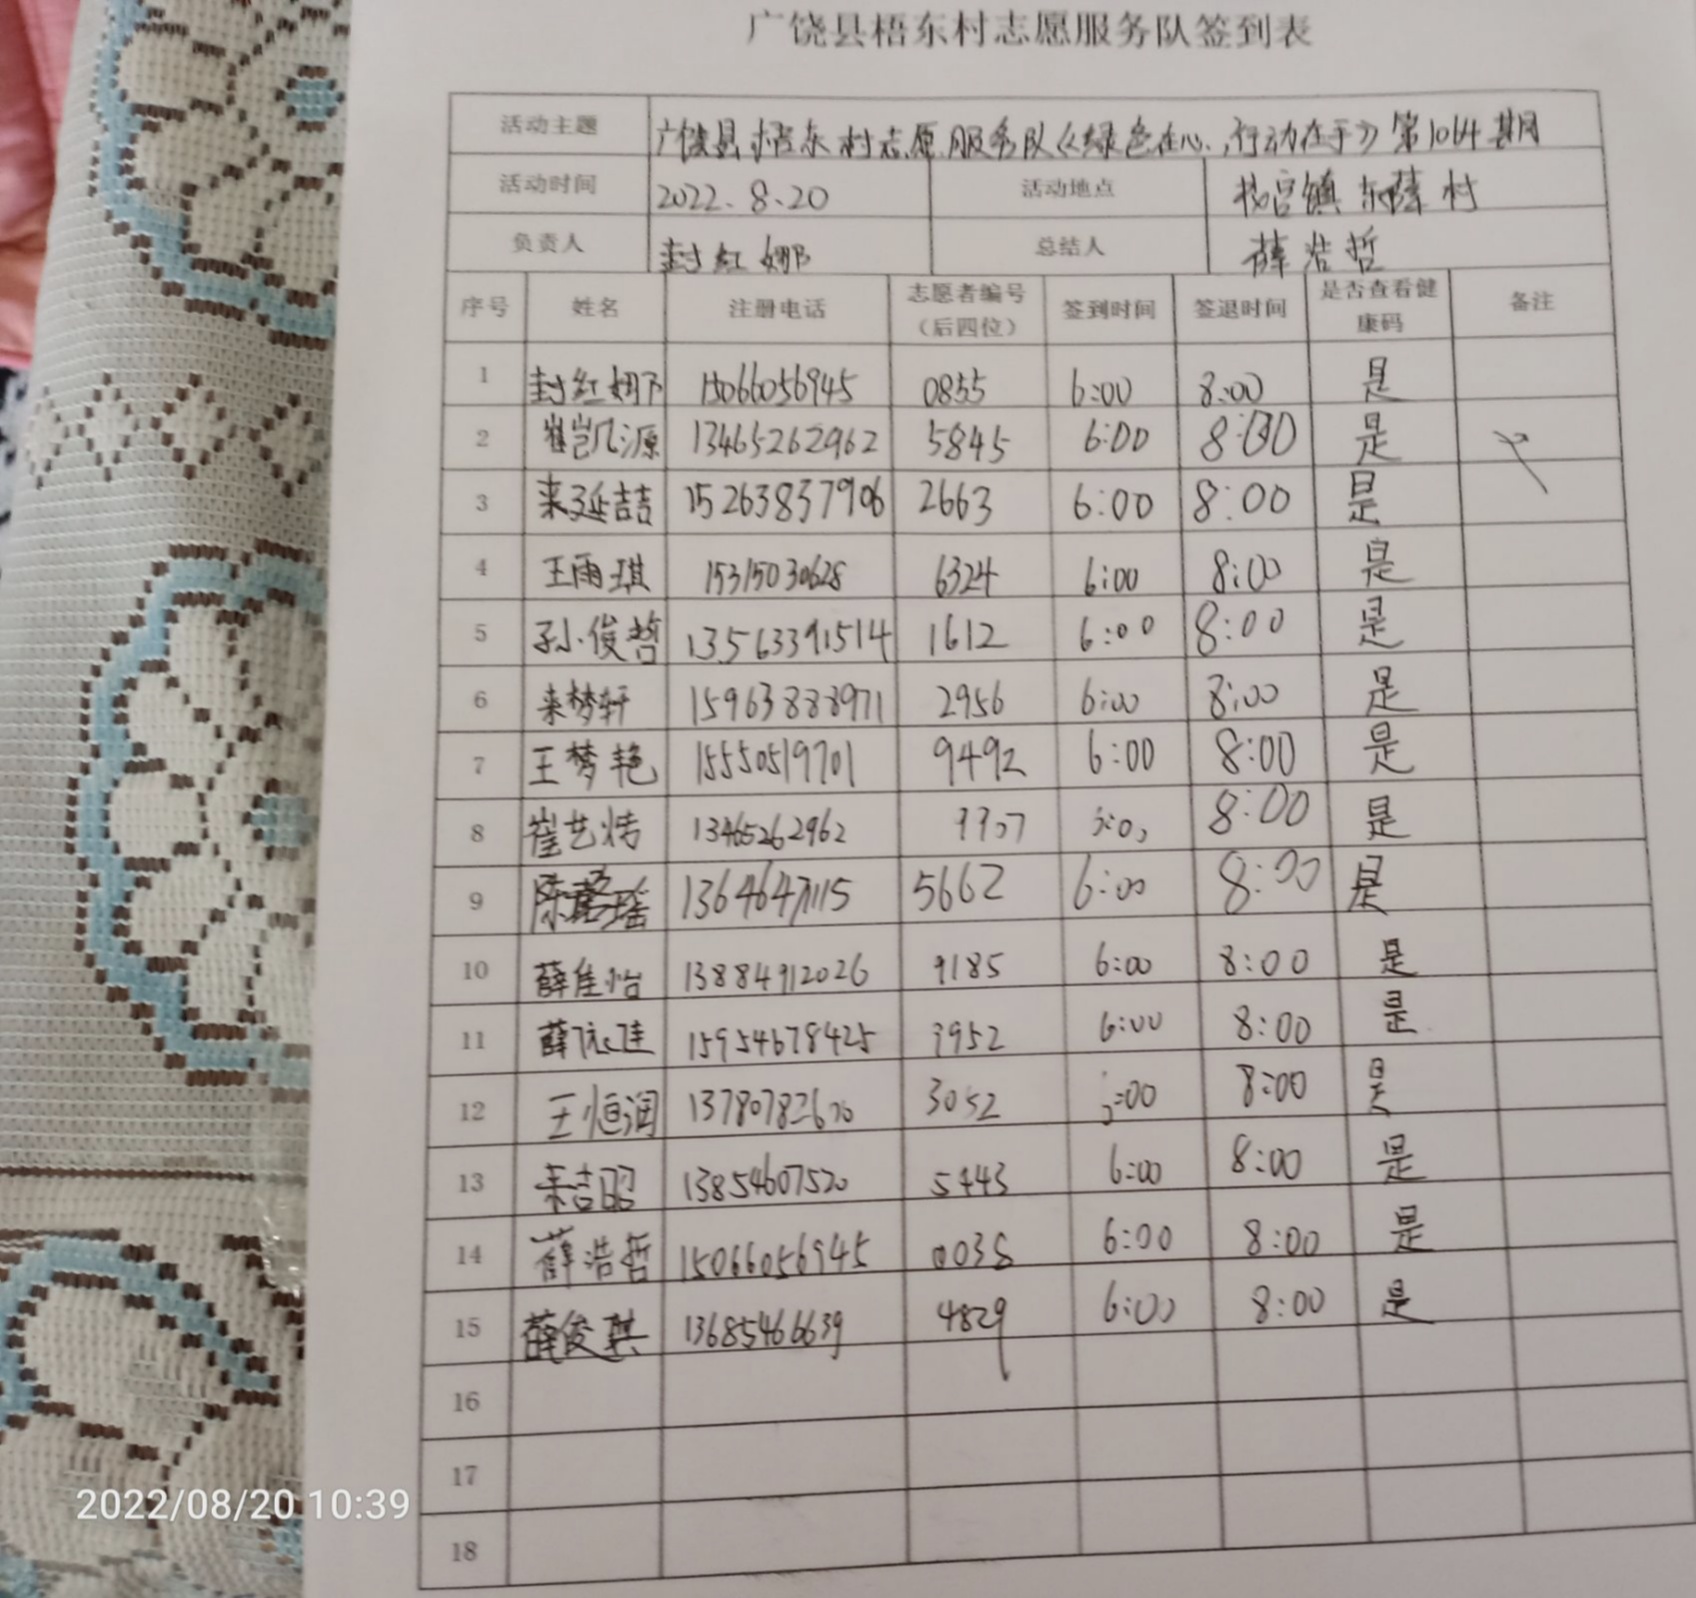 广饶县梧东村志愿服务队签到表
活动主题 广饶县梧东村志愿服务队《绿色在心,行动在手》第1064期
活动时间 2022.8.20 活动地点 镇东 村
负责人 封红娜 总结人 薛浩哲
序号 姓名 注册电话 志愿者编号（后四位） 签到时间 签退时间 是否查看健康码 备注
1 封红娜 15066056945 0855 6:00 8:00 是
2 崔凯源 13465262962 5845 6:00 8:00 是
3 来延喆 15263837906 2663 6:00 8:00 是
4 王雨琪 15315030628 6324 6:00 8:00 是
5 孙俊哲 13563391514 1612 6:00 8:00 是
6 来梦轩 15963888971 2956 6:00 8:00 是
7 王梦艳 15550519701 9492 6:00 8:00 是
8 崔艺 13465262962 8:00 是
9 陈 瑶 5662 6:00 8:00 是
10 薛佳怡 13884912026 9185 6:00 8:00 是
11 薛依佳 15954678425 3952 6:00 8:00 是
12 王恒润 3052 8:00 是
13 来吉昭 13854607520 5443 6:00 8:00 是
14 薛浩哲 15066056945 0038 6:00 8:00 是
15 薛俊琪 13685466639 4829 6:00 8:00 是
16
17
18
2022/08/20 10:39